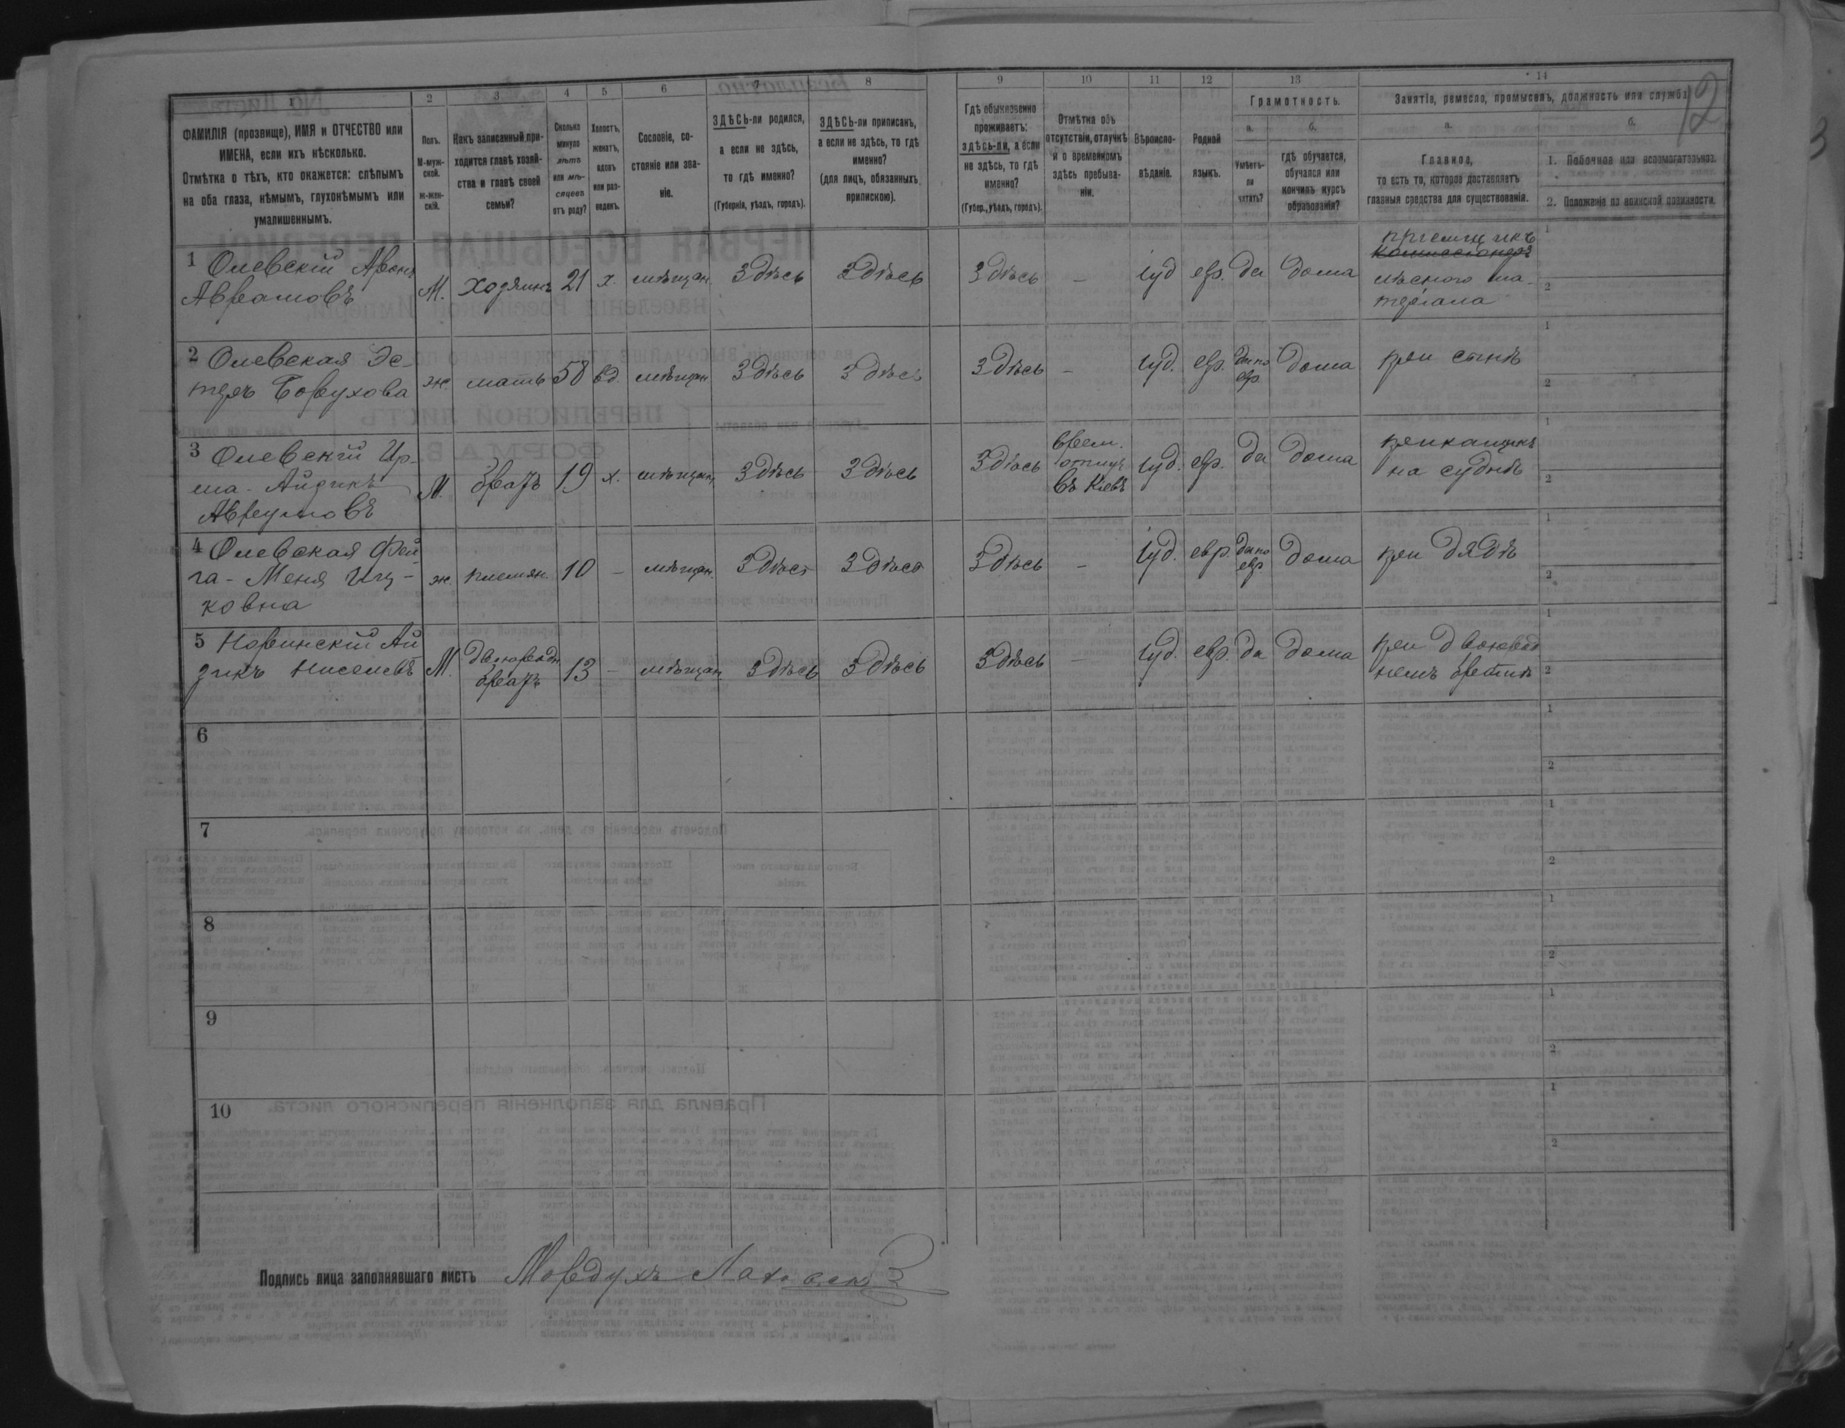 1 2 3 4 5 6 7 8 9 10 11 12 13 14
ФАМИЛІЯ (прозвище), ИМЯ и ОТЧЕСТВО или
ИМЕНА, если ихъ нѣсколько.
Отмѣтка о тѣхъ, кто окажется: слѣпымъ
на оба глаза, нѣмымъ, глухонѣмымъ или
умалишеннымъ.
Полъ.
М-муж-
ской.
Ж-жен-
скій.
Какъ записанный при-
ходится главѣ хозяй-
ства и главѣ своей
семьи?
Сколько
минуло
лѣтъ
или мѣ-
сяцевъ
отъ роду?
Холостъ,
женатъ,
вдовъ
или раз-
веденъ.
Сословіе, со-
стояніе или зва-
ніе.
ЗДѢСЬ-ли родился,
а если не здѣсь,
то гдѣ именно?
(Губернія, уѣздъ, городъ).
ЗДѢСЬ-ли приписанъ,
а если не здѣсь, то гдѣ
именно?
(для лицъ, обязанныхъ
припискою).
Гдѣ обыкновенно
проживаетъ:
здѣсь-ли, а если
не здѣсь, то гдѣ
именно?
(Губер., уѣздъ, городъ).
Отмѣтка объ
отсутствіи, отлучкѣ
и о временномъ
здѣсь пребыва-
ніи.
Вѣроиспо-
вѣданіе.
Родной
языкъ.
Грамотность.
а. б.
Умѣетъ-
ли
читать?
гдѣ обучается,
обучался или
кончилъ курсъ
образованія?
Занятіе, ремесло, промыселъ, должность или служба.
12
а. б.
Главное,
то есть то, которое доставляетъ
главныя средства для существованія.
1. Побочное или вспомогательное.
2. Положеніе по воинской повинности.
1 Олевскій Аронъ
Аврамовъ
М. хозяинъ 21 х. мѣщан. Здѣсь Здѣсь Здѣсь — іуд евр. да дома
приемщикъ
лѣсного ма-
теріала
2 Олевская Эс-
теръ Борухова
ж. мать 58 вд. мѣщан Здѣсь Здѣсь Здѣсь — іуд. евр. да по евр. дома при сынѣ
3 Олевскій Ир-
ма-Айзикъ
Аврумовъ
М. братъ 19 х. мѣщан. Здѣсь Здѣсь Здѣсь врем. отлуч. въ Кіевѣ іуд. евр. да дома
прикащикъ
на суднѣ
4 Олевская Фей-
га-Меня Иц-
ковна
ж. племян. 10 — мѣщан. Здѣсь Здѣсь Здѣсь — іуд. евр. да по евр. дома при дядѣ
5 Норинскій Ай-
зикъ Ниселевъ
М. двоюродн. братъ 13 — мѣщан. Здѣсь Здѣсь Здѣсь — іуд. евр. да дома
при двоюрод
номъ братѣ
6
7
8
9
10
Подпись лица заполнявшаго листъ Мордухъ